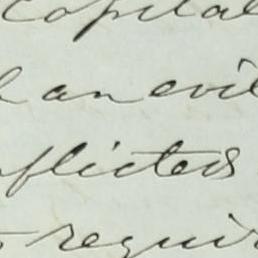 capital
an evil
nflicted
requir